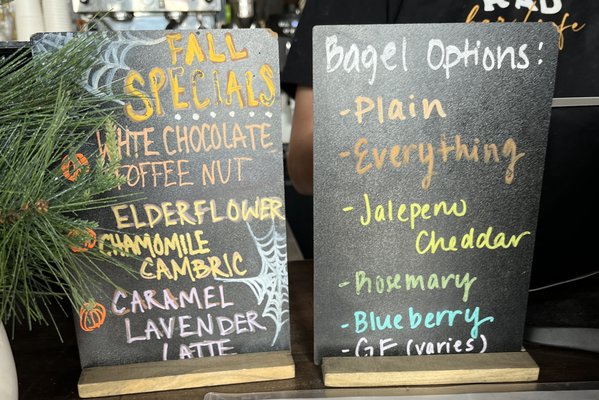 FALL
SPECIALS
WHITE CHOCOLATE
TOFFEE NUT
ELDERFLOWER
CHAMOMILE
CAMBRIC
CARAMEL
LAVENDER
LATTE
Bagel Options:
-Plain
-Everything
-Jalepeno
Cheddar
-Rosemary
-Blueberry
-GF (varies)